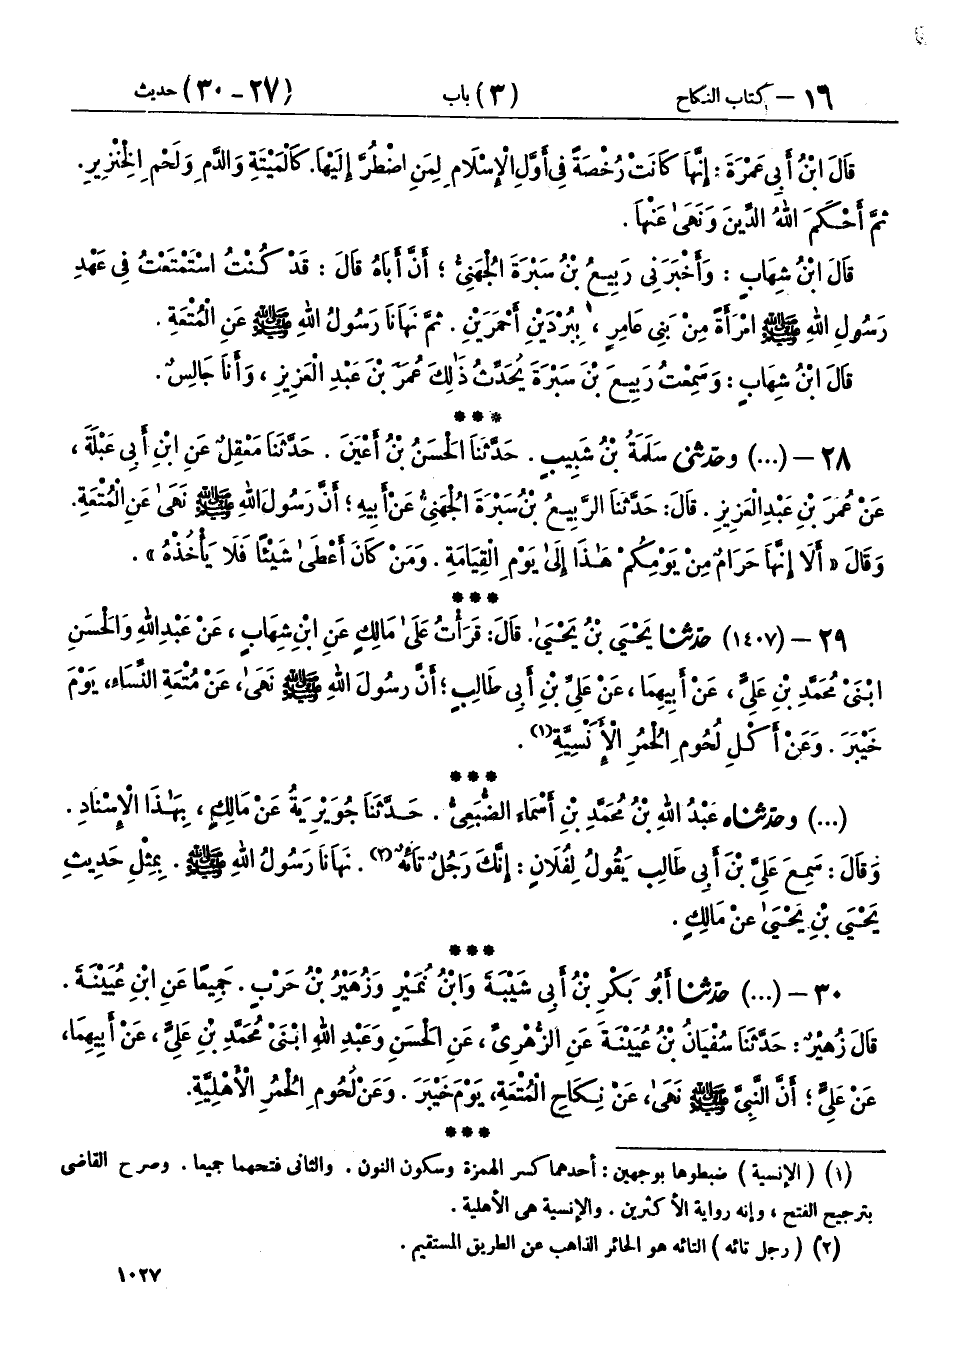 ١٦ — كتاب النكاح (٣) باب (٢٧ - ٣٠) حديث
قَالَ ابْنُ أَبِي عَمْرَةَ : إِنَّهَا كَانَتْ رُخْصَةً فِي أَوَّلِ الْإِسْلَامِ لِمَنِ اضْطُرَّ إِلَيْهَا. كَالْمَيْتَةِ وَالدَّمِ وَلَحْمِ الْخِنْزِيرِ.
ثُمَّ أَحْكَمَ اللهُ الدِّينَ وَنَهَىٰ عَنْهَا .
قَالَ ابْنُ شِهَابٍ : وَأَخْبَرَنِي رَبِيعُ بْنُ سَبْرَةَ الْجُهَنِيُّ ؛ أَنَّ أَبَاهُ قَالَ : قَدْ كُنْتُ اسْتَمْتَعْتُ فِي عَهْدِ
رَسُولِ اللهِ ﷺ امْرَأَةً مِنْ بَنِي عَامِرٍ ، بِبُرْدَيْنِ أَحْمَرَيْنِ . ثُمَّ نَهَانَا رَسُولُ اللهِ ﷺ عَنِ الْمُتْعَةِ .
قَالَ ابْنُ شِهَابٍ : وَسَمِعْتُ رَبِيعَ بْنَ سَبْرَةَ يُحَدِّثُ ذَٰلِكَ عُمَرَ بْنَ عَبْدِ الْعَزِيزِ ، وَأَنَا جَالِسٌ .
***
٢٨ — (...) وحَدَّثَنِي سَلَمَةُ بْنُ شَبِيبٍ . حَدَّثَنَا الْحَسَنُ بْنُ أَعْيَنَ . حَدَّثَنَا مَعْقِلٌ عَنِ ابْنِ أَبِي عَبْلَةَ ،
عَنْ عُمَرَ بْنِ عَبْدِ الْعَزِيزِ . قَالَ: حَدَّثَنَا الرَّبِيعُ بْنُ سَبْرَةَ الْجُهَنِيُّ عَنْ أَبِيهِ ؛ أَنَّ رَسُولَ اللهِ ﷺ نَهَىٰ عَنِ الْمُتْعَةِ.
وَقَالَ « أَلَا إِنَّهَا حَرَامٌ مِنْ يَوْمِكُمْ هَٰذَا إِلَىٰ يَوْمِ الْقِيَامَةِ . وَمَنْ كَانَ أَعْطَىٰ شَيْئًا فَلَا يَأْخُذْهُ » .
***
٢٩ — (١٤٠٧) حَدَّثَنَا يَحْيَىٰ بْنُ يَحْيَىٰ. قَالَ: قَرَأْتُ عَلَىٰ مَالِكٍ عَنِ ابْنِ شِهَابٍ ، عَنْ عَبْدِ اللهِ وَالْحَسَنِ
ابْنَيْ مُحَمَّدِ بْنِ عَلِيٍّ ، عَنْ أَبِيهِمَا ، عَنْ عَلِيِّ بْنِ أَبِي طَالِبٍ ؛ أَنَّ رَسُولَ اللهِ ﷺ نَهَىٰ، عَنْ مُتْعَةِ النِّسَاءِ، يَوْمَ
خَيْبَرَ . وَعَنْ أَكْلِ لُحُومِ الْحُمُرِ الْأَنْسِيَّةِ(١) .
***
(...) وحَدَّثَنَاه عَبْدُ اللهِ بْنُ مُحَمَّدِ بْنِ أَسْمَاءَ الضُّبَعِيُّ . حَدَّثَنَا جُوَيْرِيَةُ عَنْ مَالِكٍ ، بِهَٰذَا الْإِسْنَادِ .
وَقَالَ : سَمِعَ عَلِيَّ بْنَ أَبِي طَالِبٍ يَقُولُ لِفُلَانٍ : إِنَّكَ رَجُلٌ تَائِهٌ(٢) . نَهَانَا رَسُولُ اللهِ ﷺ . بِمِثْلِ حَدِيثِ
يَحْيَىٰ بْنِ يَحْيَىٰ عَنْ مَالِكٍ .
***
٣٠ — (...) حَدَّثَنَا أَبُو بَكْرِ بْنُ أَبِي شَيْبَةَ وَابْنُ نُمَيْرٍ وَزُهَيْرُ بْنُ حَرْبٍ . جَمِيعًا عَنِ ابْنِ عُيَيْنَةَ .
قَالَ زُهَيْرٌ : حَدَّثَنَا سُفْيَانُ بْنُ عُيَيْنَةَ عَنِ الزُّهْرِيِّ ، عَنِ الْحَسَنِ وَعَبْدِ اللهِ ابْنَيْ مُحَمَّدِ بْنِ عَلِيٍّ ، عَنْ أَبِيهِمَا،
عَنْ عَلِيٍّ ؛ أَنَّ النَّبِيَّ ﷺ نَهَىٰ، عَنْ نِكَاحِ الْمُتْعَةِ، يَوْمَ خَيْبَرَ . وَعَنْ لُحُومِ الْحُمُرِ الْأَهْلِيَّةِ.
***
(١) ( الإنسية ) ضبطوها بوجهين : أحدهما كسر الهمزة وسكون النون . والثانى فتحهما جميعا . وصرح القاضى
بترجيح الفتح ، وإنه رواية الأكثرين . والإنسية هى الأهلية .
(٢) ( رجل تائه ) التائه هو الحائر الذاهب عن الطريق المستقيم .
١٠٢٧